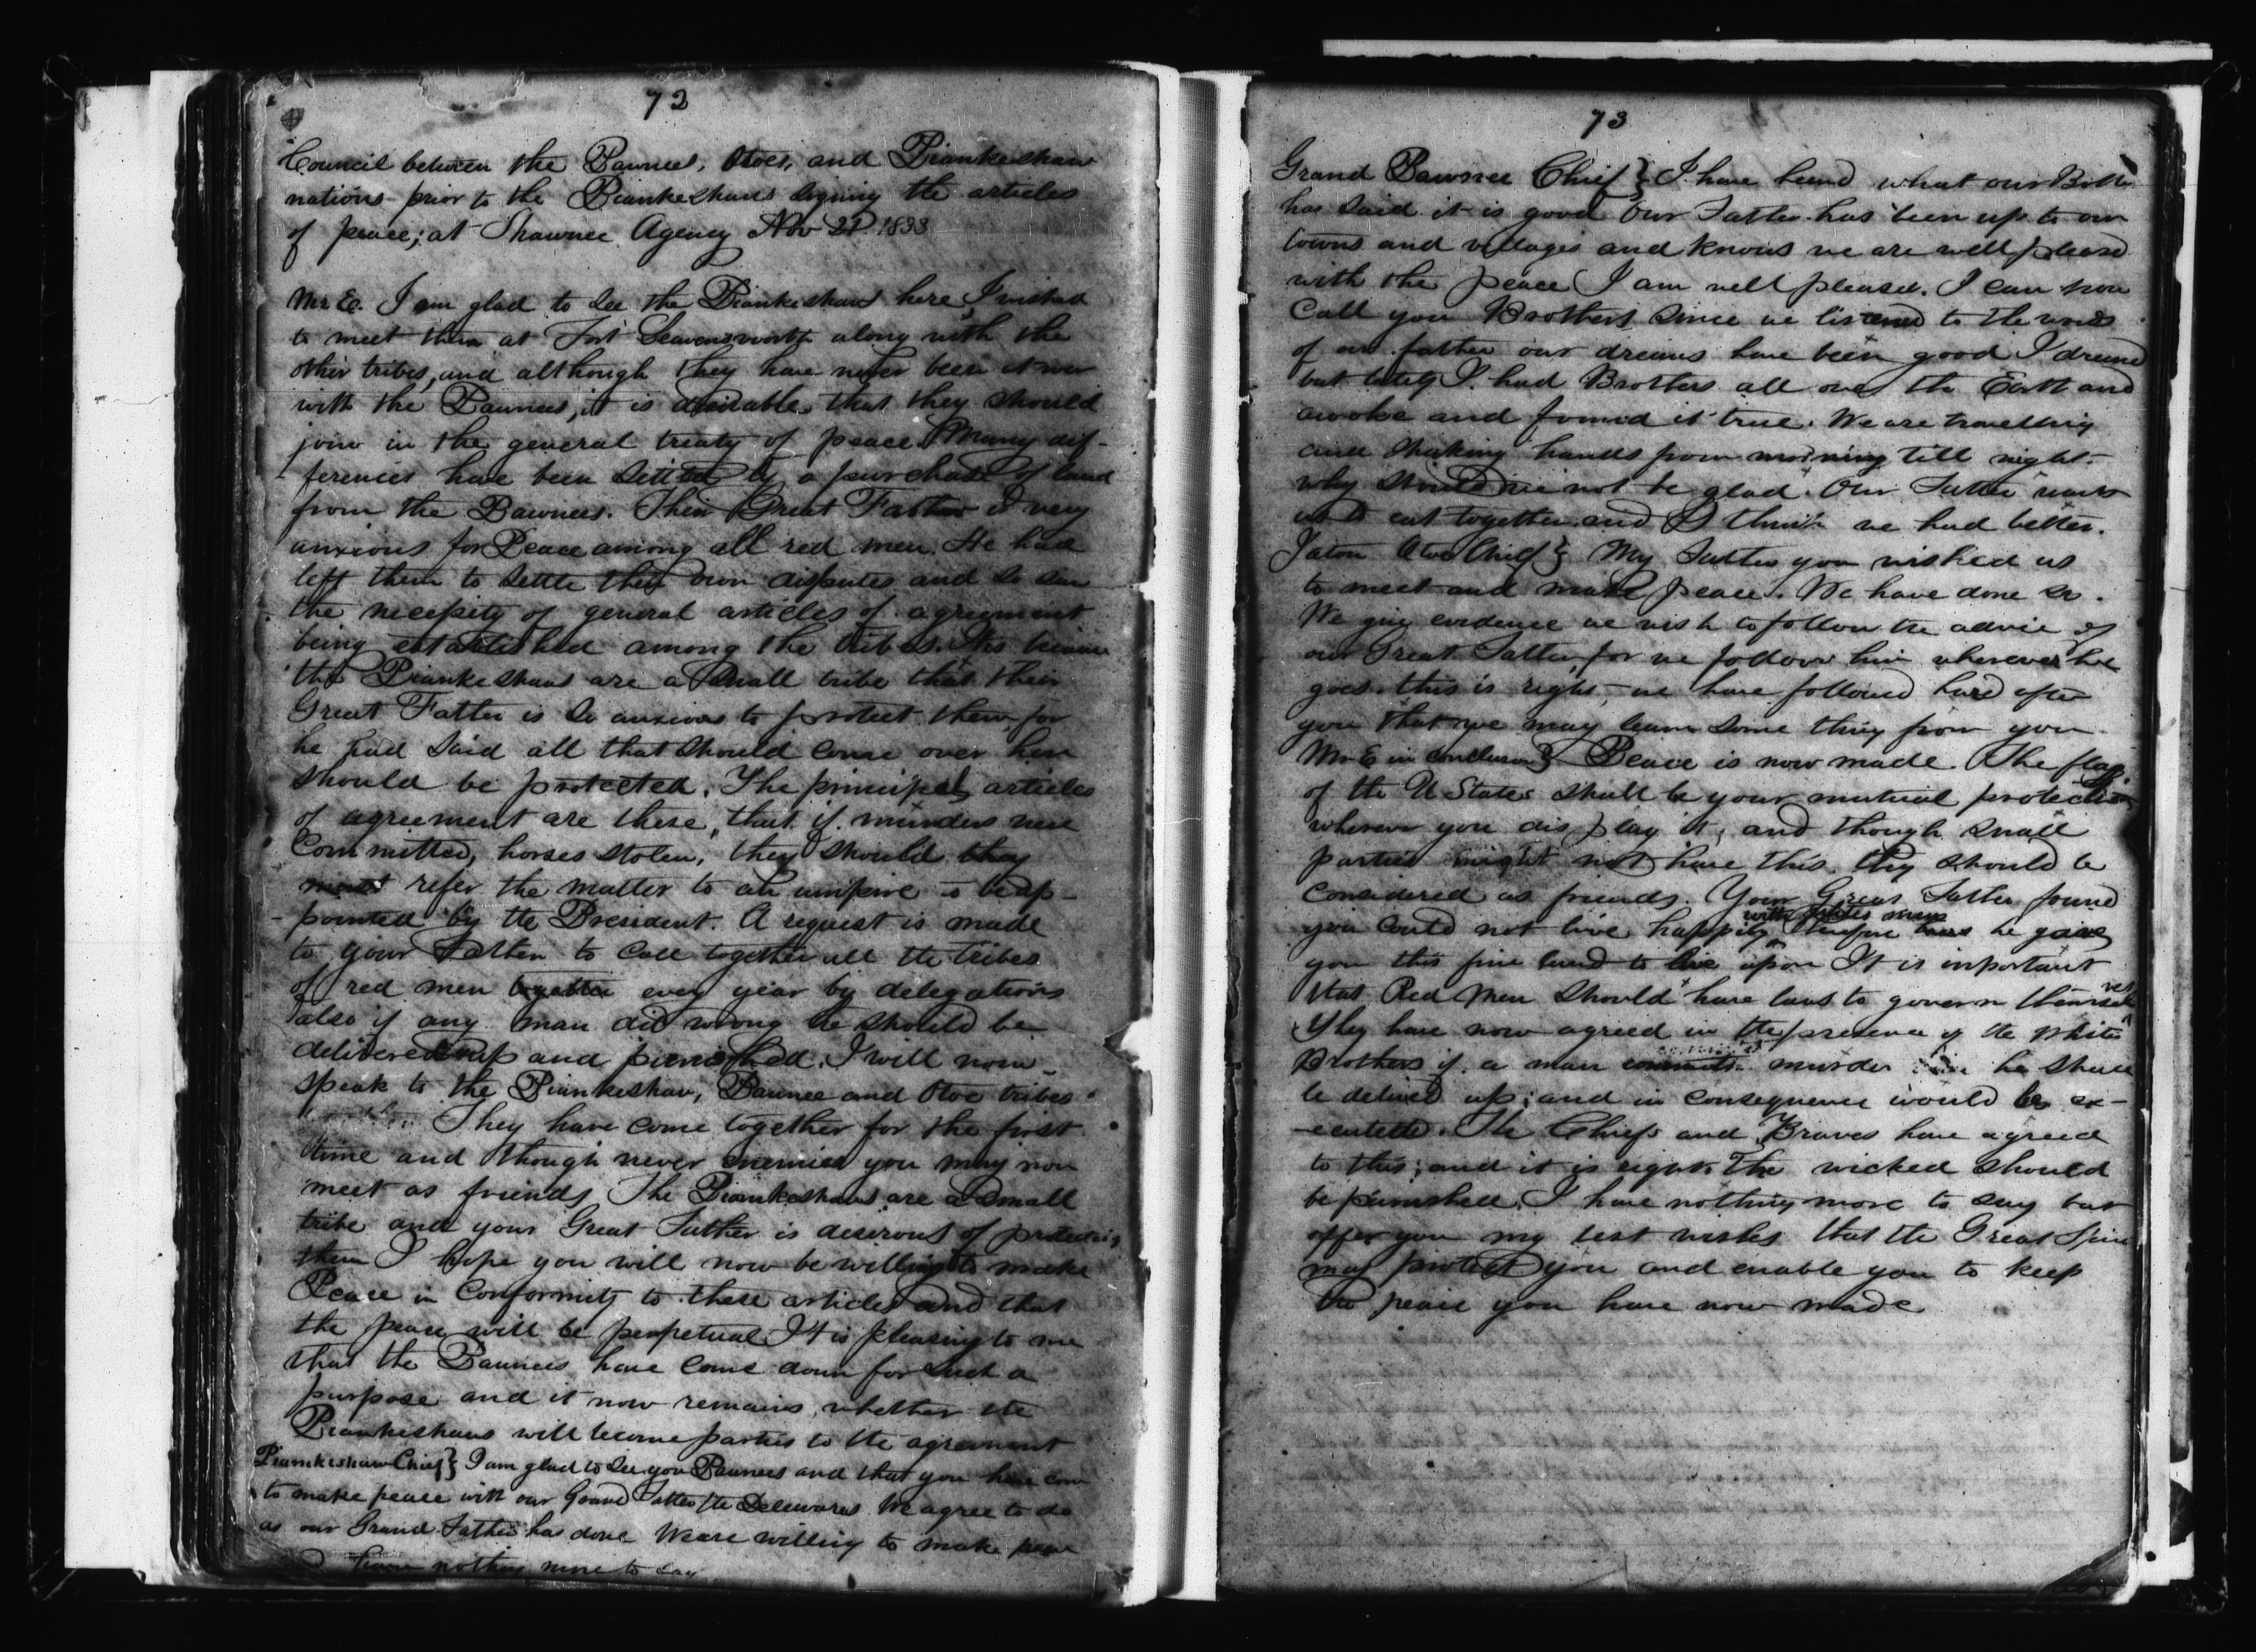 72
Council between the Pawnees, Otoes, and Piankeshaw
nations prior to the Piankeshaws signing the articles
of peace; at Shawnee Agency Nov 21. 1833
Mr E. I am glad to see the Piankeshaws here, I wished
to meet them at Fort Leavensworth along with the
other tribes, and although they have never been at war
with the Pawnees, it is desirable that they should
join in the general treaty of peace. Many dif-
ferences have been settled by a purchase of land
from the Pawnees. Their Great Father is very
anxious for Peace among all red men. He had
left them to settle their own disputes and so saw
the necessity of general articles of agreement
being established among the tribes. Tis because
the Piankeshaws are a small tribe that their
Great Father is so anxious to protect them, for
he had said all that should come over here
should be protected. The principal articles
of agreement are these, that if murders were
Committed, horses stolen, they should they
must refer the matter to an umpire to be ap-
-pointed by the President. A request is made
to your Father to call together all the tribes
of red men together every year by delegations
also if any man did wrong he should be
delivered up and punished. I will now
speak to the Piankeshaw, Pawnee and Otoe tribes
They have come together for the first
time and though never enemies you may now
meet as friends. The Piankeshaws are a small
tribe and your Great Father is desirous of protecting
them I hope you will now be willing to make
Peace in Conformity to these articles and that
the peace will be perpetual It is pleasing to me
that the Pawnees have come down for such a
purpose and it now remains whether the
Piankeshaws will become parties to the agreement
Piankeshaw Chief} I am glad to see you Pawnees and that you have com
to make peace with our Grand Father the Delewares We agree to do
as our Grand Father has done We are willing to make peace
have nothing more to say
73
Grand Pawnee Chief} I have heard what our Broth
has said it is good Our Father has been up to our
towns and villages and knows we are well pleased
with the peace I am well pleased. I can now
Call you Brothers since we listened to the words
of our father our dreams have been good I dreamed
but lately I had Brothers all over the Earth and
awoke and found it true. We are travelling
and shaking hands from morning till night.
why should we not be glad. Our Father wants
us to eat together and I think we had better.
Jatan Otoe Chief} My Father you wished us
to meet and make peace. We have done so.
We give evidence we wish to follow the advice of
our Great Father, for we follow him wherever he
goes. this is right, we have followed hard after
you that we may learn some thing from you
Mr E in conclusion} Peace is now made. The flag
of the U States shall be your mutual protection
wherever you display it, and though small
parties might not have this they should be
considered as friends. Your Great Father found
with white man
you could not live happily therefore he gave
you this fine land to live upon It is important
that Red Men should have laws to govern themselves
They have now agreed in the presence of the White
Brothers if a man commits murder he shall
be deliverd up; and in consequence would be ex-
-ecuted. The Chiefs and Braves have agreed
to this; and it is right. The wicked should
be punished. I have nothing more to say but
offer you my best wishes that the Great Spirit
may protect you and enable you to keep
the peace you have now made